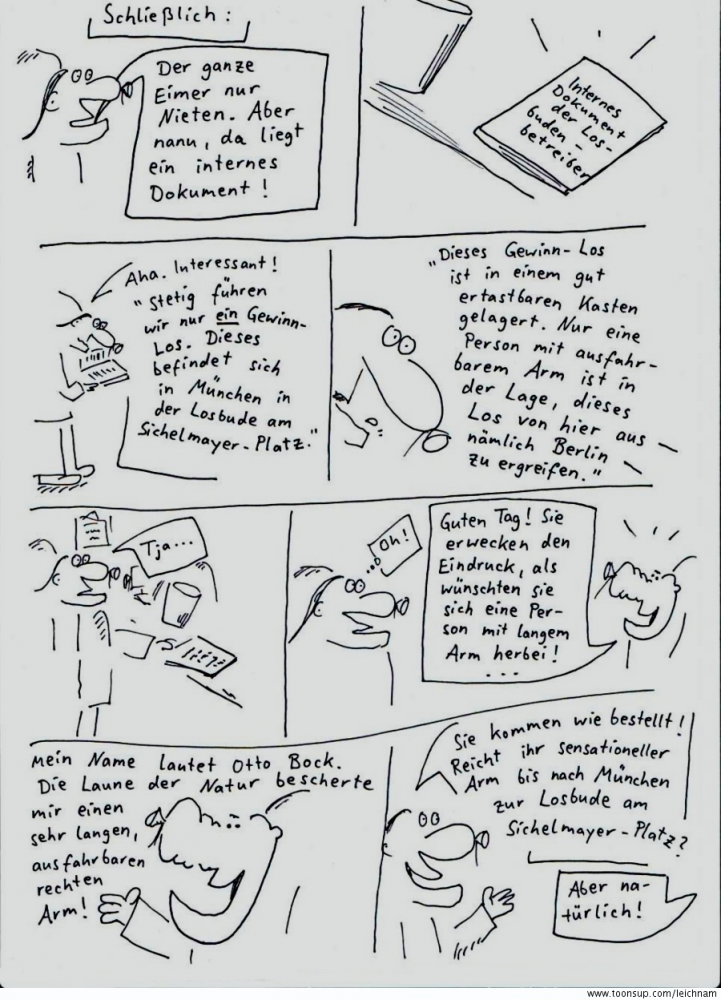 Schließlich:
Der ganze
Eimer nur
Nieten. Aber
nanu, da liegt
ein internes
Dokument!
Internes
Dokument
der Los-
buden-
betreiber
Aha. Interessant!
"Stetig führen
wir nur ein Gewinn-
Los. Dieses
befindet sich
in München in
der Losbude am
Sichelmayer-Platz."
„Dieses Gewinn-Los
ist in einem gut
ertastbaren Kasten
gelagert. Nur eine
Person mit ausfahr-
barem Arm ist in
der Lage, dieses
Los von hier aus -
nämlich Berlin -
zu ergreifen."
Tja...
Oh!
Guten Tag! Sie
erwecken den
Eindruck, als
wünschten sie
sich eine Per-
son mit langem
Arm herbei!
...
Mein Name lautet Otto Bock.
Die Laune der Natur bescherte
mir einen
sehr langen,
ausfahrbaren
rechten
Arm!
Sie kommen wie bestellt!
Reicht ihr sensationeller
Arm bis nach München
zur Losbude am
Sichelmayer-Platz?
Aber na-
türlich!
www.toonsup.com/leichnam